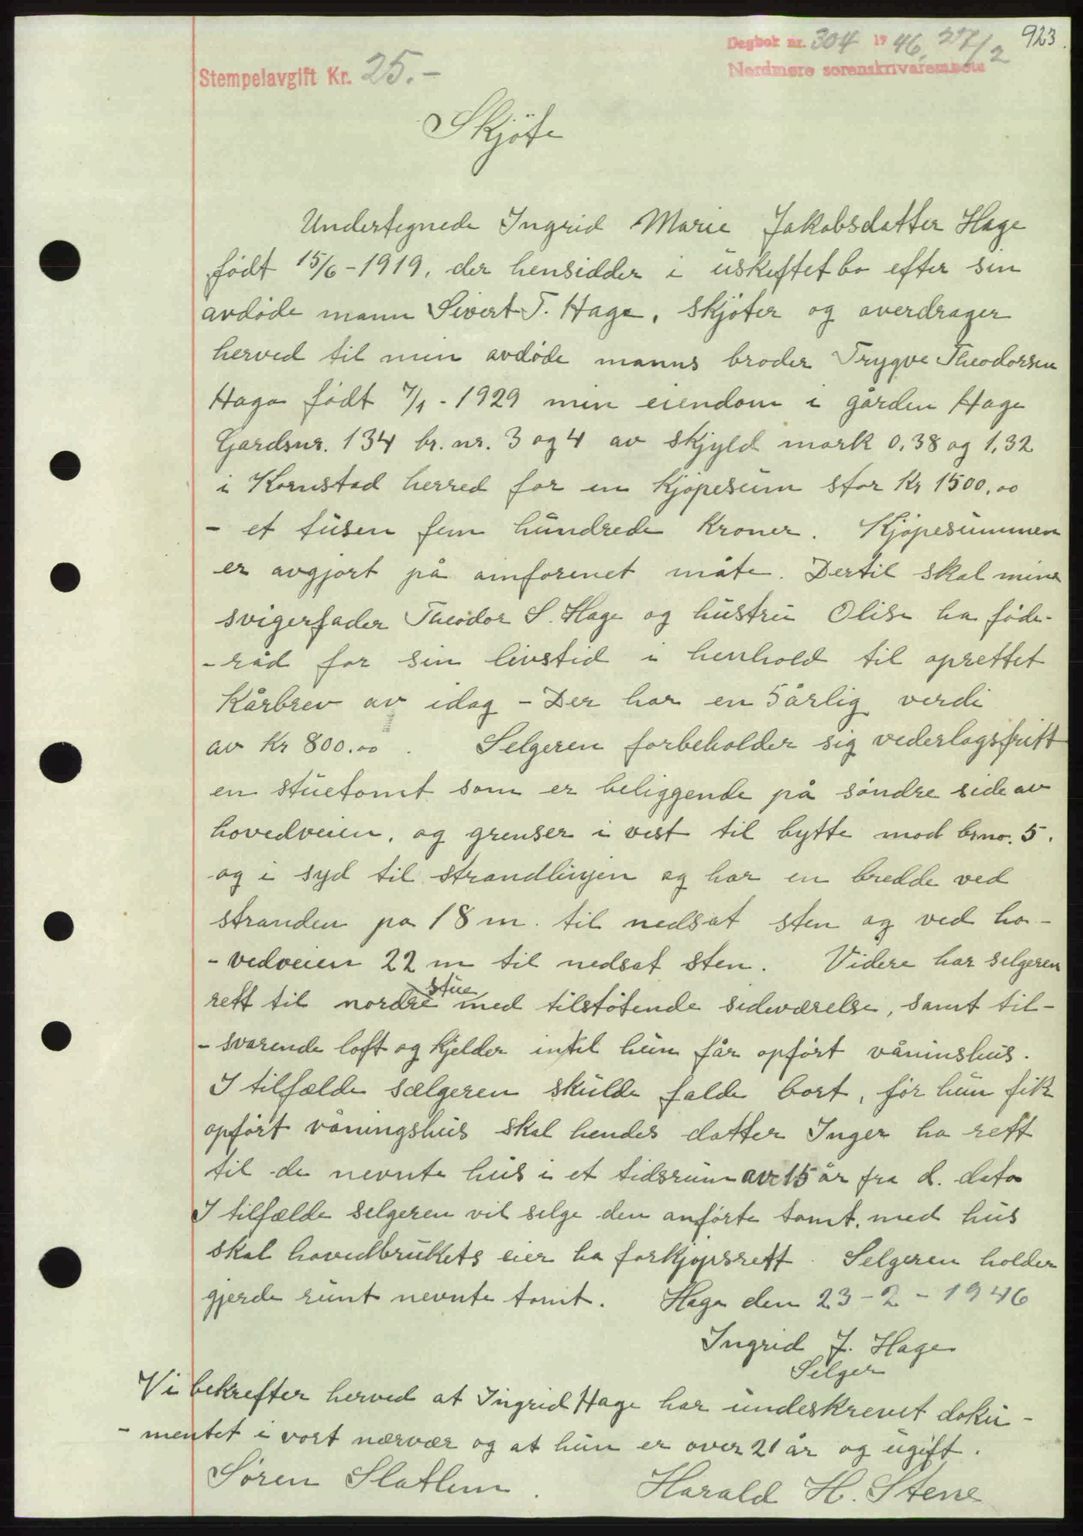 923.
Dagbok nr. 304 1946, 27/2
Nordmøre sorenskrivarembete
Stempelavgift Kr. 25.-
Skjøte
Undertegnede Ingrid Marie Jakobsdatter Hage
født 15/6-1919, der hensidder i uskiftet bo efter sin
avdøde mann Sivert T. Hage, skjøter og averdrager
herved til min avdøde manns broder Trygve Theodorsen
Hage født 7/1-1929 min eiendom i gården Hage
Gardsnr. 134 br. nr. 3 og 4 av skjyld mark 0,38 og 1,32
i Kornstad herred for en kjøpesum stor Kr 1500,00
- et tusen fem hundrede kroner. Kjøpesummen
er avgjort på omforenet måte. Dertil skal mine
svigerfader Theodor S. Hage og hustru Olise ha føde-
-råd for sin livstid i henhold til oprettet
Kårbrev av idag - Der har en 5 årlig verdi
av Kr 800.00. Selgeren forbeholder sig vederlagsfritt
en stuetomt som er beliggende på søndre side av
hovedveien, og grenser i vest til bytte mod brno. 5.
og i syd til strandlinjen og har en bredde ved
stranden pa 18 m. til nedsat sten og ved ho-
-vedveien 22 m til nedsat sten. Videre har selgeren
rett til nordre stue med tilstøtende sideværelse, samt til-
-svarende loft og kjelder inntil hun får opført våninshus.
I tilfælde sælgeren skulde falde bort, før hun fik
opført våningshus skal hendes datter Inger ha rett
til de nevnte hus i et tidsrum av 15 år fra d. dato
I tilfælde selgeren vil selge den anførte tomt, med hus
skal hovedbrukets eier ha forkjøpsrett. Selgeren holder
gjerde runt nevnte tomt. Hage den 23-2-1946
Ingrid J. Hage
Selger
Vi bekrefter herved at Ingrid Hage har underskrevet doku-
-mentet i vort nærvær og at hun er over 21 år og ugift.
Søren Slatlem. Harald H. Stene